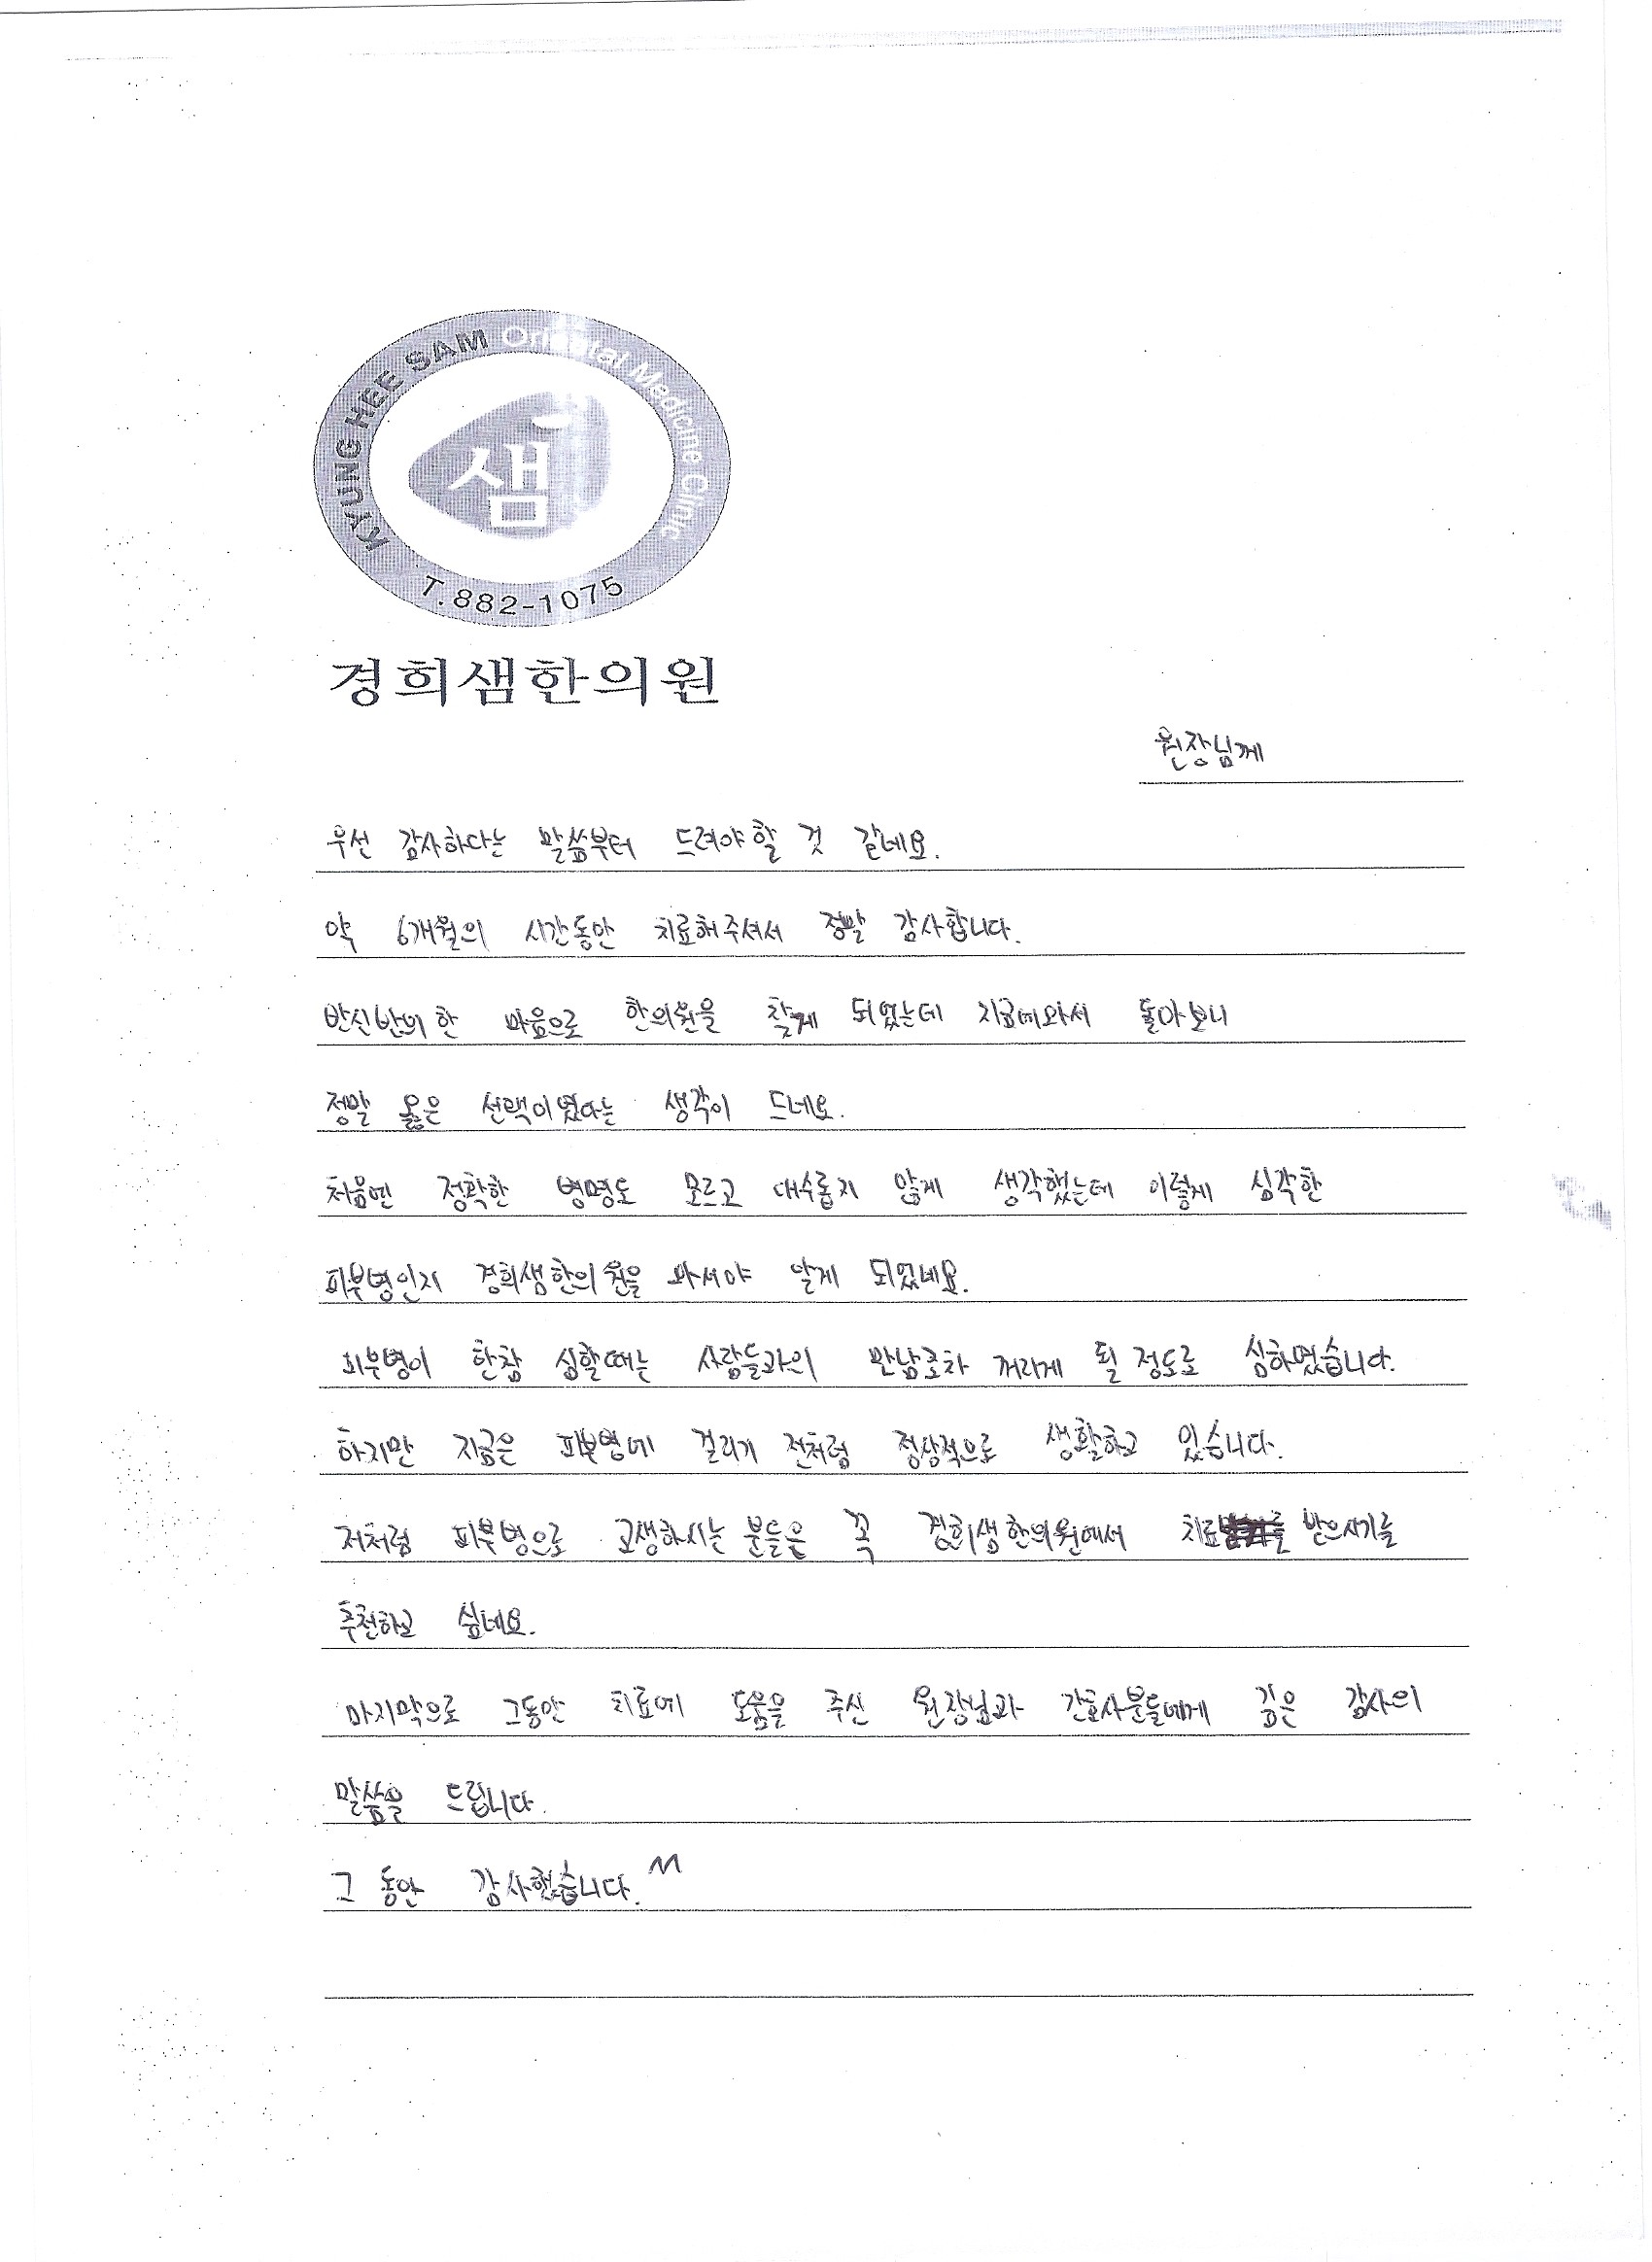 KYUNG HEE SAM Oriental Medicine Clinic
샘
T.882-1075
경희샘한의원
원장님께
우선 감사하다는 말씀부터 드려야할 것 같네요.
약 6개월의 시간동안 치료해주셔서 정말 감사합니다.
반신반의한 마음으로 한의원을 찾게 되었는데 지금에와서 돌아보니
정말 옳은 선택이였다는 생각이 드네요.
처음엔 정확한 병명도 모르고 대수롭지 않게 생각했는데 이렇게 심각한
피부병인지 경희샘한의원을 와서야 알게 되었네요.
피부병이 한참 심할때는 사람들과의 만남조차 꺼리게 될 정도로 심하였습니다.
하지만 지금은 피부병에 걸리기 전처럼 정상적으로 생활하고 있습니다.
저처럼 피부병으로 고생하시는 분들은 꼭 경희샘한의원에서 치료를 받으시기를
추천하고 싶네요.
마지막으로 그동안 치료에 도움을 주신 원장님과 간호사분들에게 깊은 감사의
말씀을 드립니다.
그 동안 감사했습니다.^^